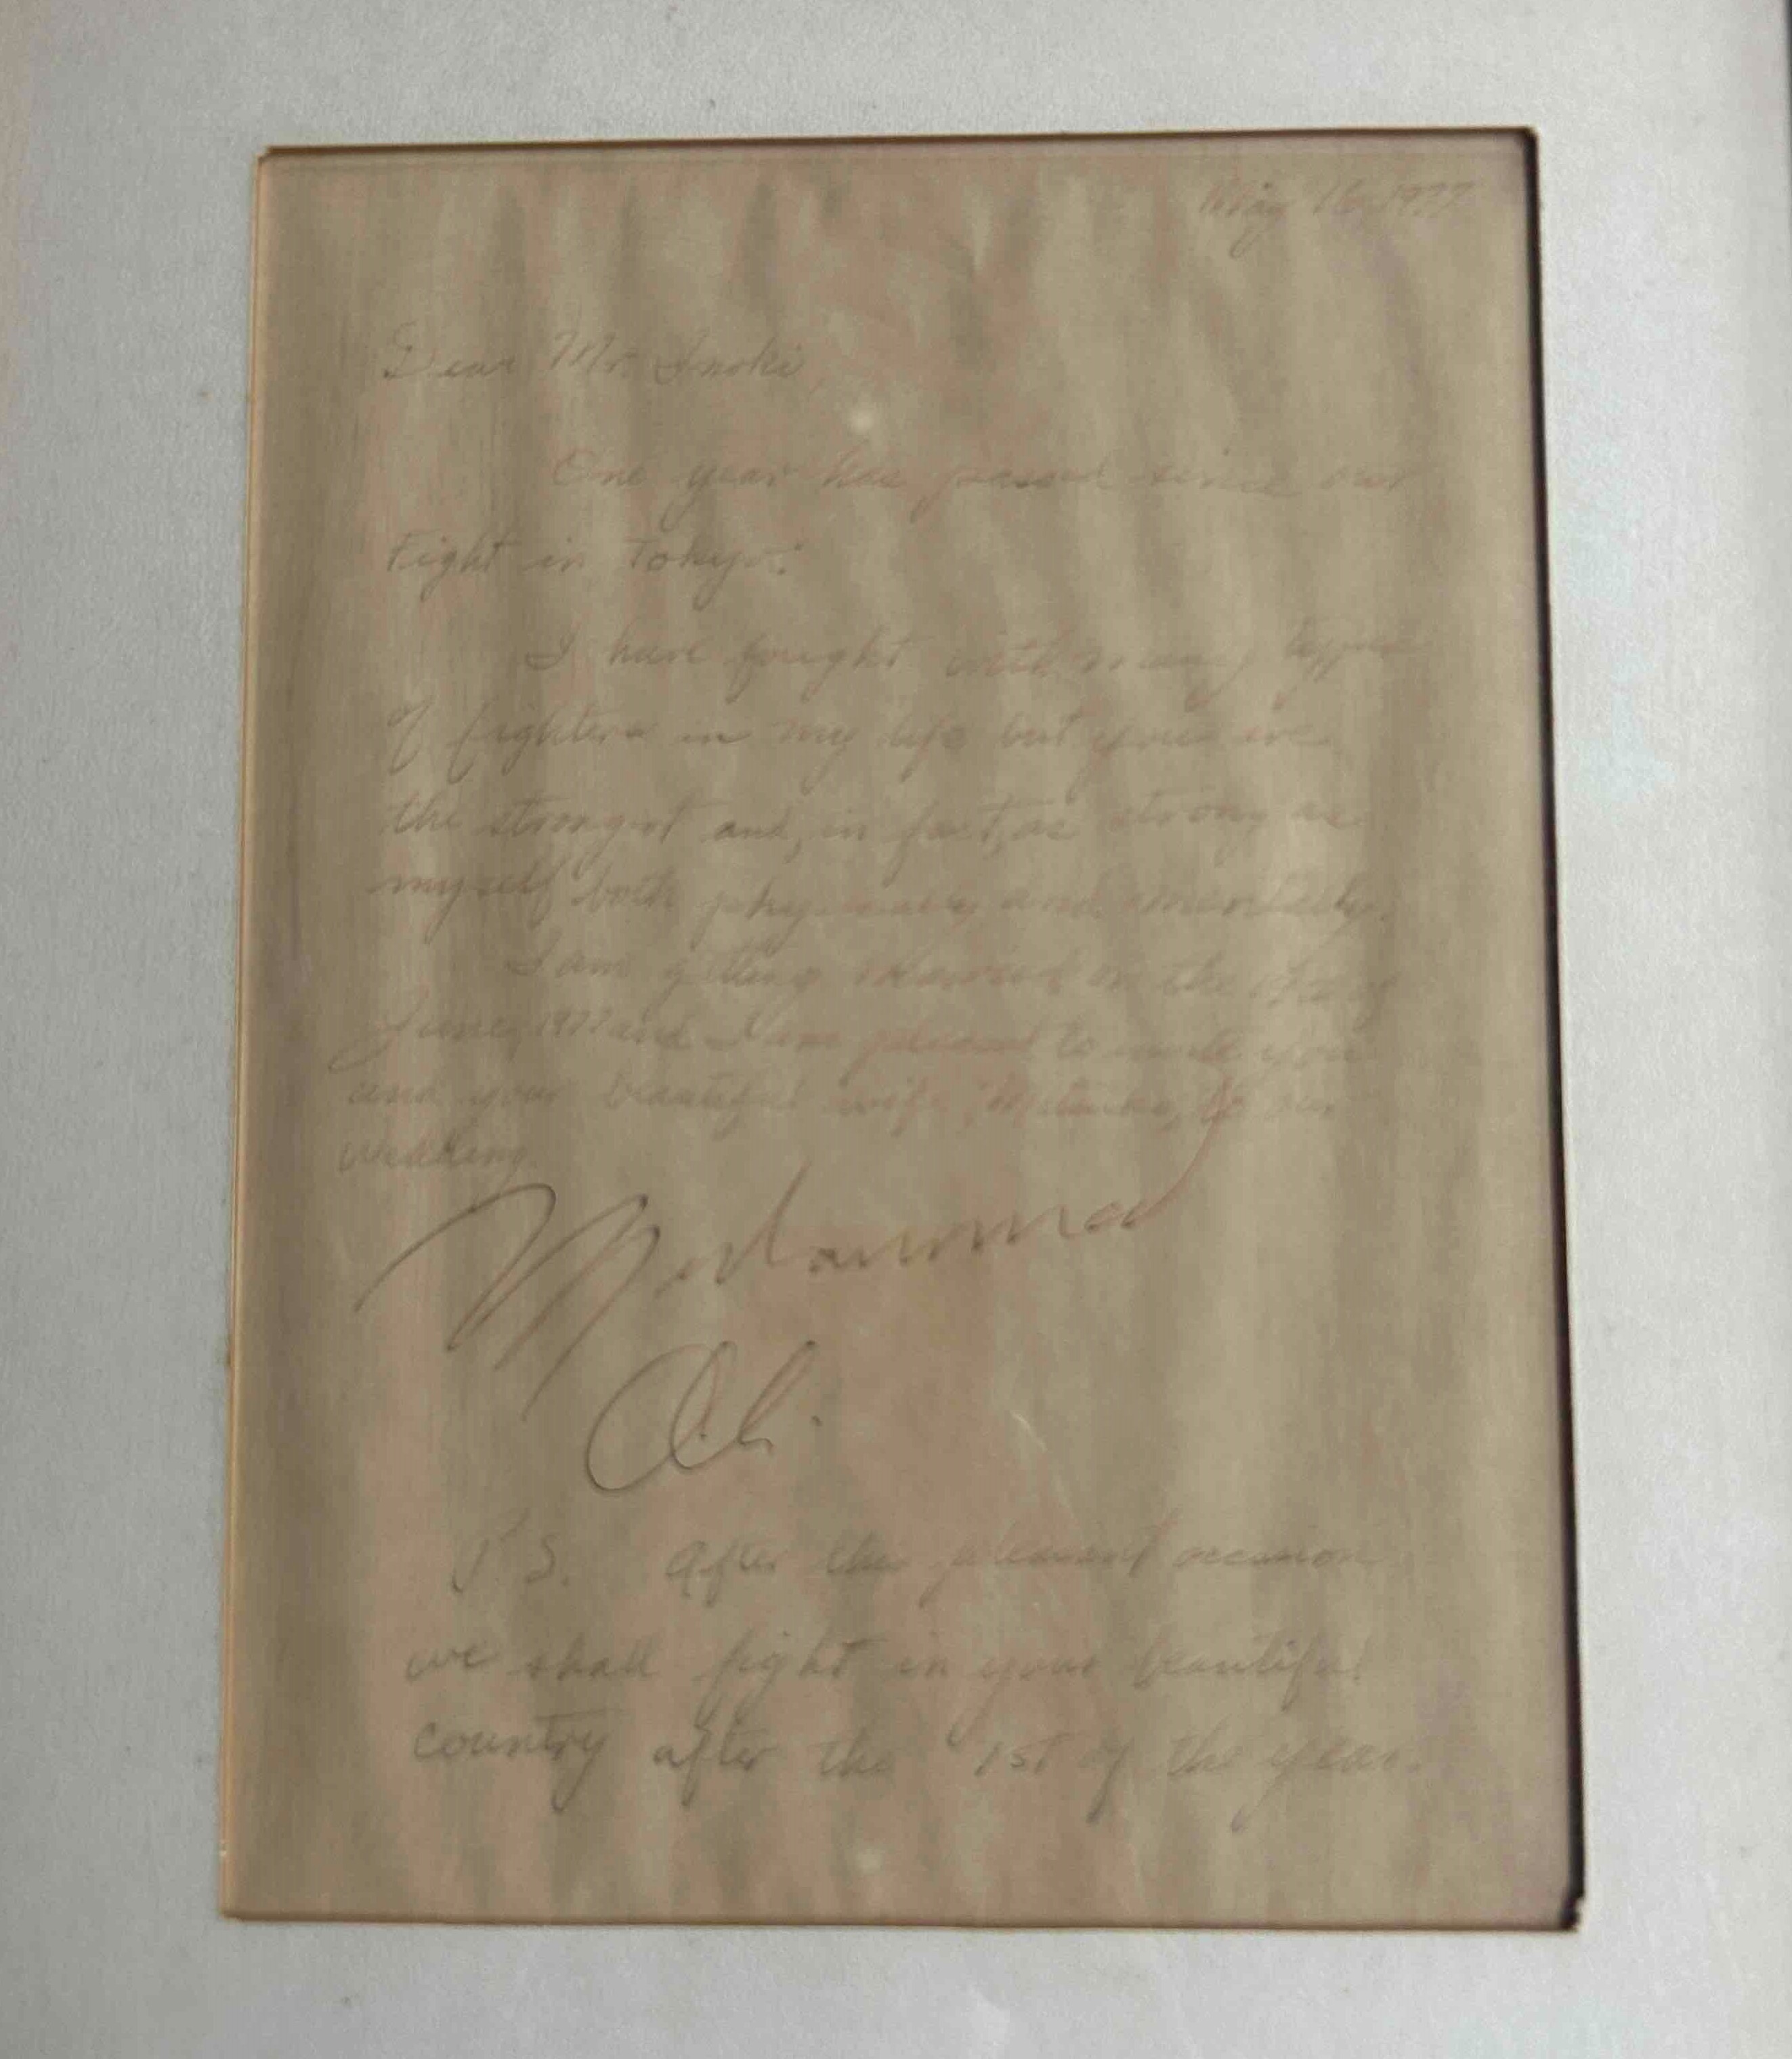 May 16, 1977
Dear Mr. Inoki
One year has passed since our
Fight in Tokyo.
I have fought with many types
of fighters in my life but you are
the strongest and, in fact, as strong as
myself both physically and mentally.
I am getting married on the of
June, 1977 and I am pleased to invite you
and your beautiful wife, to our
wedding.
Muhammad
Ali
P.S. After this pleasant occasion
we shall fight in your beautiful
country after the 1st of the year.